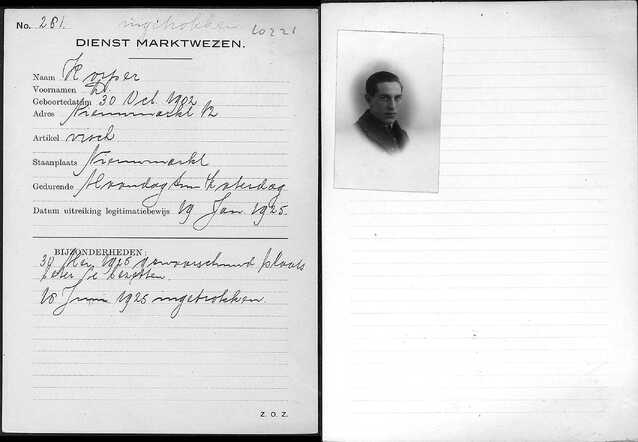 No. 261. ingetrokken 10221
DIENST MARKTWEZEN.
Naam Korper
Voornamen
Geboortedatum 30 Oct. 1902
Adres Nieuwmarkt 12
Artikel visch
Staanplaats Nieuwmarkt
Gedurende Maandag t/m Zaterdag
Datum uitreiking legitimatiebewijs 19 Jan. 1925.
BIJZONDERHEDEN:
1925 gewaarschuwd plaats
beter te bezetten.
16 Juni 1925 ingetrokken.
Z. O. Z.